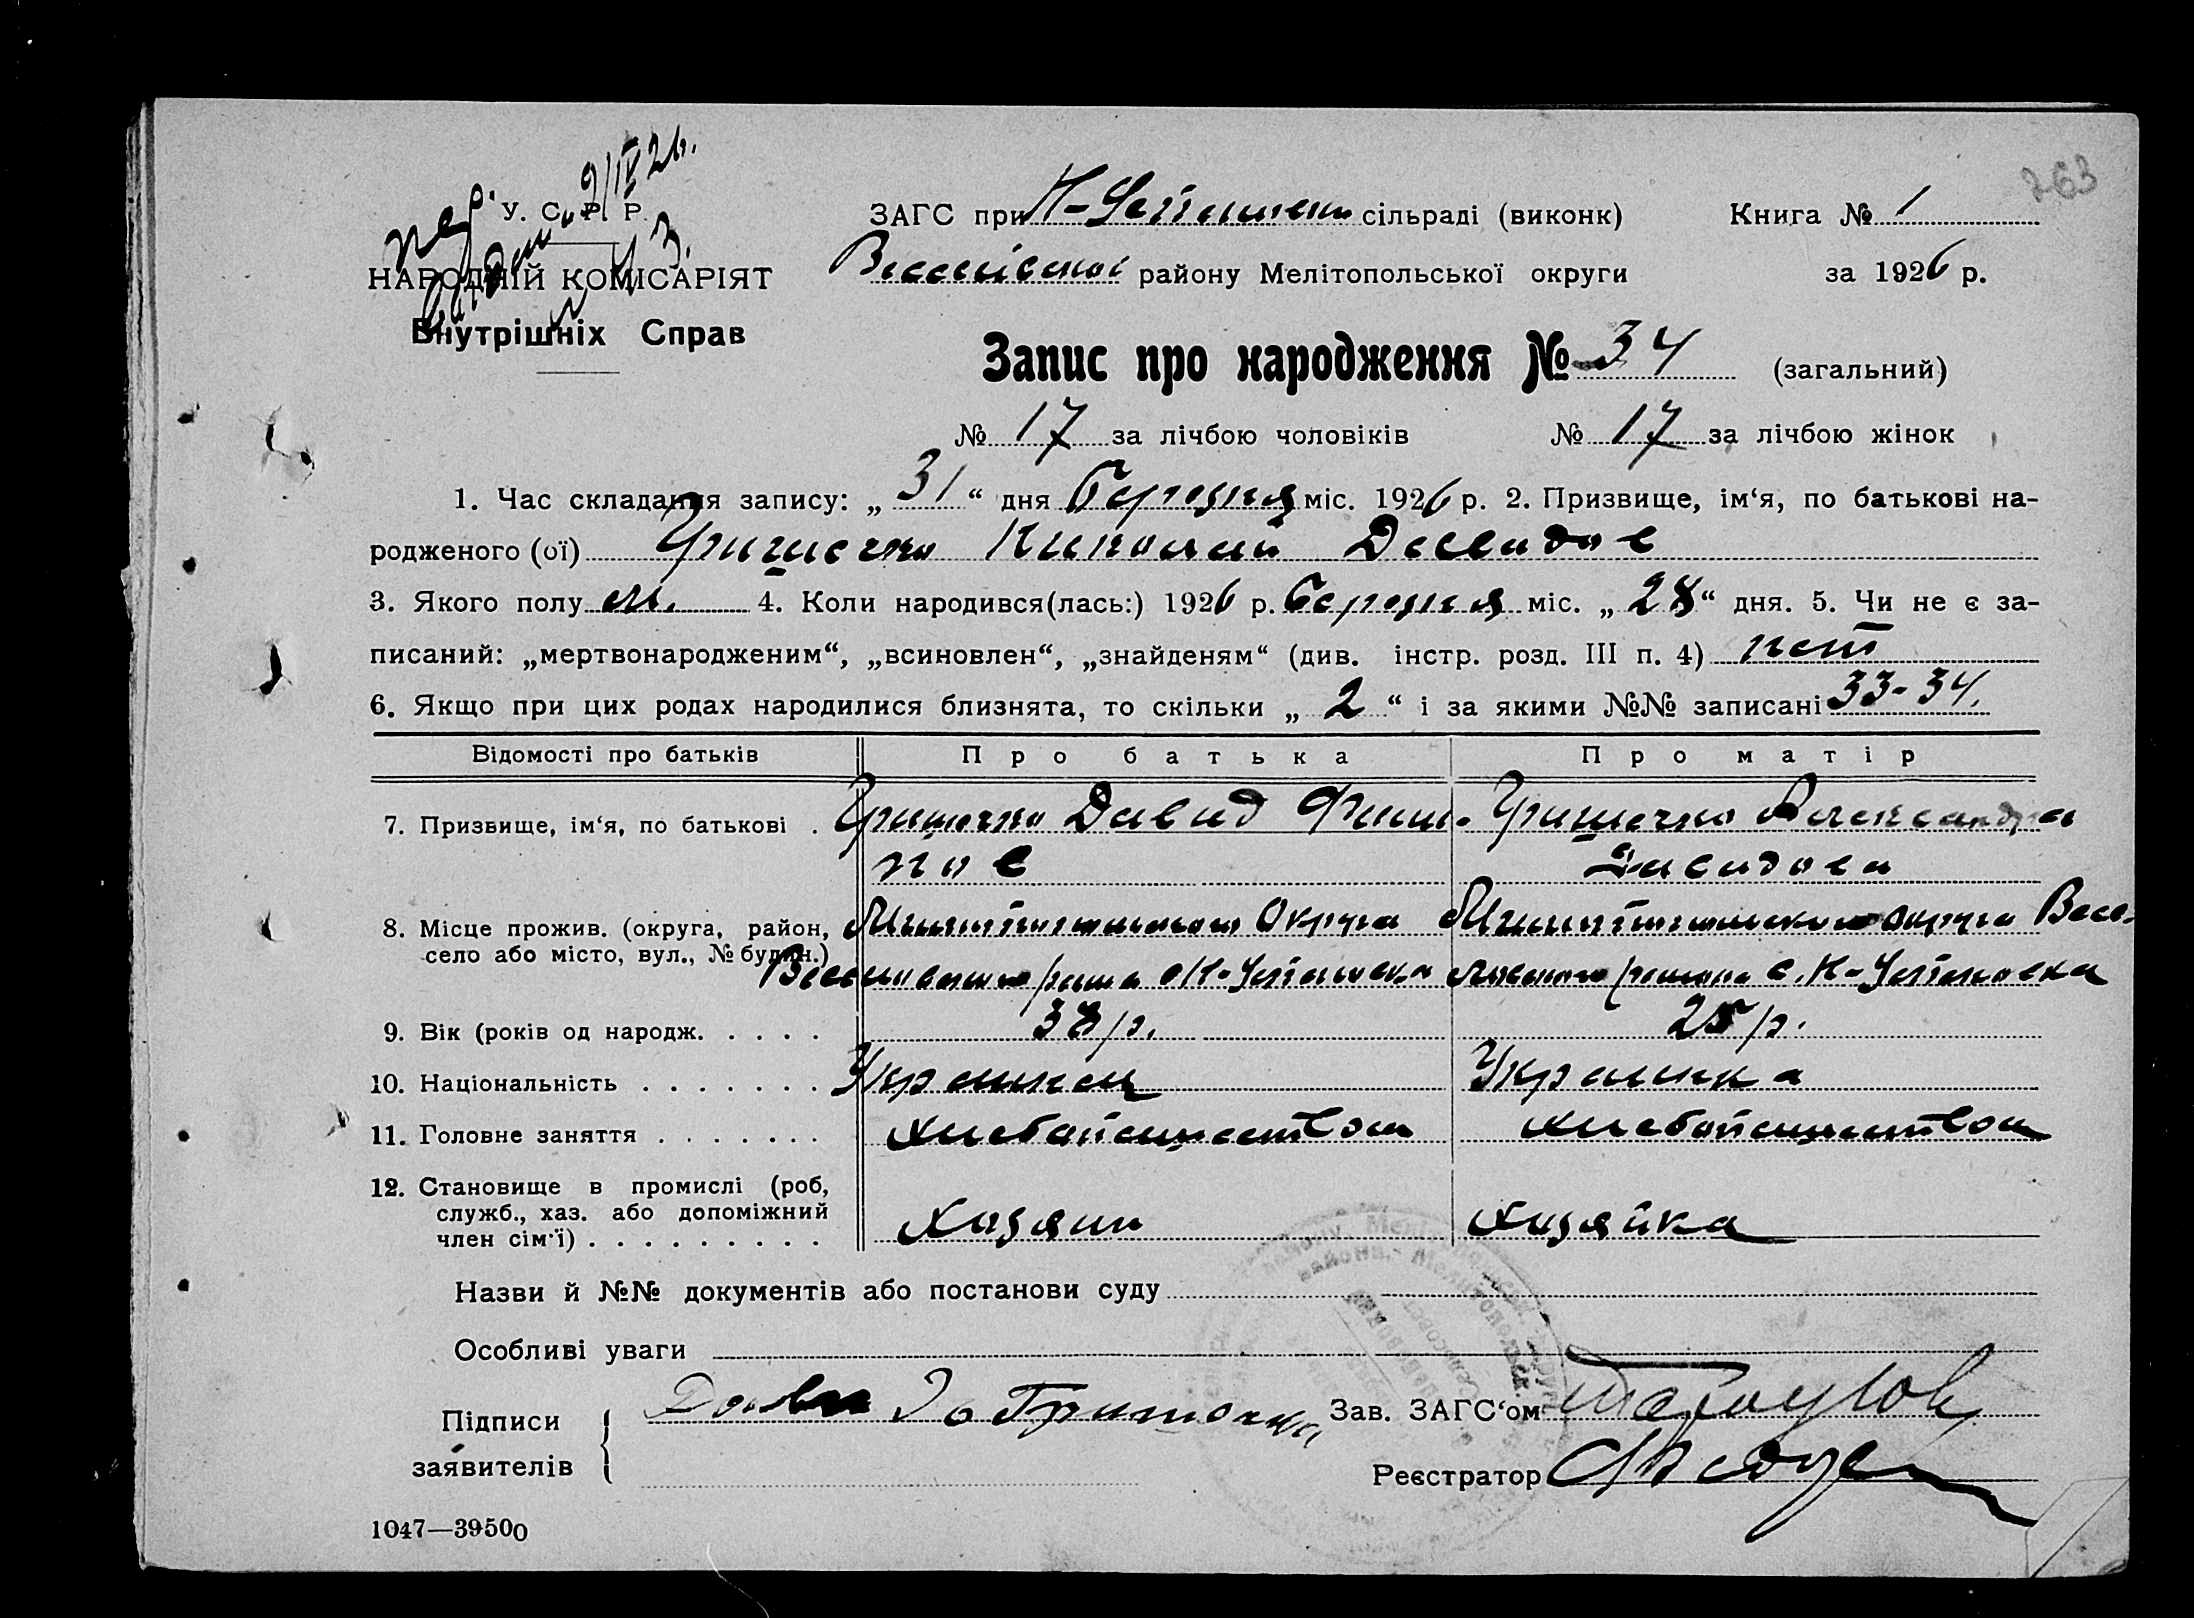 263
У. С. Р. Р.
НАРОДНІЙ КОМІСАРІЯТ
Внутрішніх Справ
9/IV 26.
ЗАГС при сільраді (виконк) Книга № 1
району Мелітопольської округи за 1926 р.
Запис про народження № 34 (загальний)
№ 17 за лічбою чоловіків № 17 за лічбою жінок
1. Час складання запису: „31“ дня Березня міс. 1926 р. 2. Призвище, ім‘я, по батькові на-
родженого (ої) Гришечко Николай Давидов
3. Якого полу м. 4. Коли народився(лась:) 1926 р. березня міс. „28“ дня. 5. Чи не є за-
писаний: „мертвонародженим“, „всиновлен“, „знайденям“ (див. інстр. розд. III п. 4) нет
6. Якщо при цих родах народилися близнята, то скільки „2“ і за якими №№ записані 33-34.
Відомості про батьків Про батька Про матір
7. Призвище, ім‘я, по батькові . Давид Филип- Александра
пов Давидова
8. Місце прожив. (округа, район, Округа округа Весе-
село або місто, вул., № будин.)
9. Вік (років од народж. . . . . 38 р. 25 р.
10. Національність . . . . . . . Украинец Украинка
11. Головне заняття . . . . . . . хлебопашеством хлебопашеством
12. Становище в промислі (роб,
служб., хаз. або допоміжний Хозяин Хозяйка
член сім‘ї) . . . . . . . . .
Назви й №№ документів або постанови суду
Особливі уваги
Підписи
заявителів
Зав. ЗАГС‘ом
Реєстратор
1047—39500